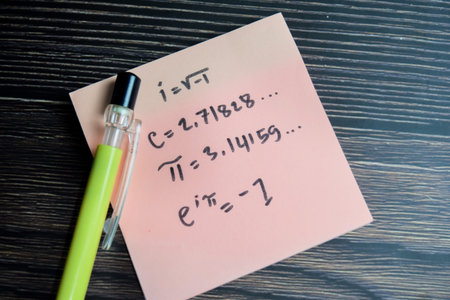 i = √-1
e = 2.71828...
π = 3.14159...
e^iπ = -1